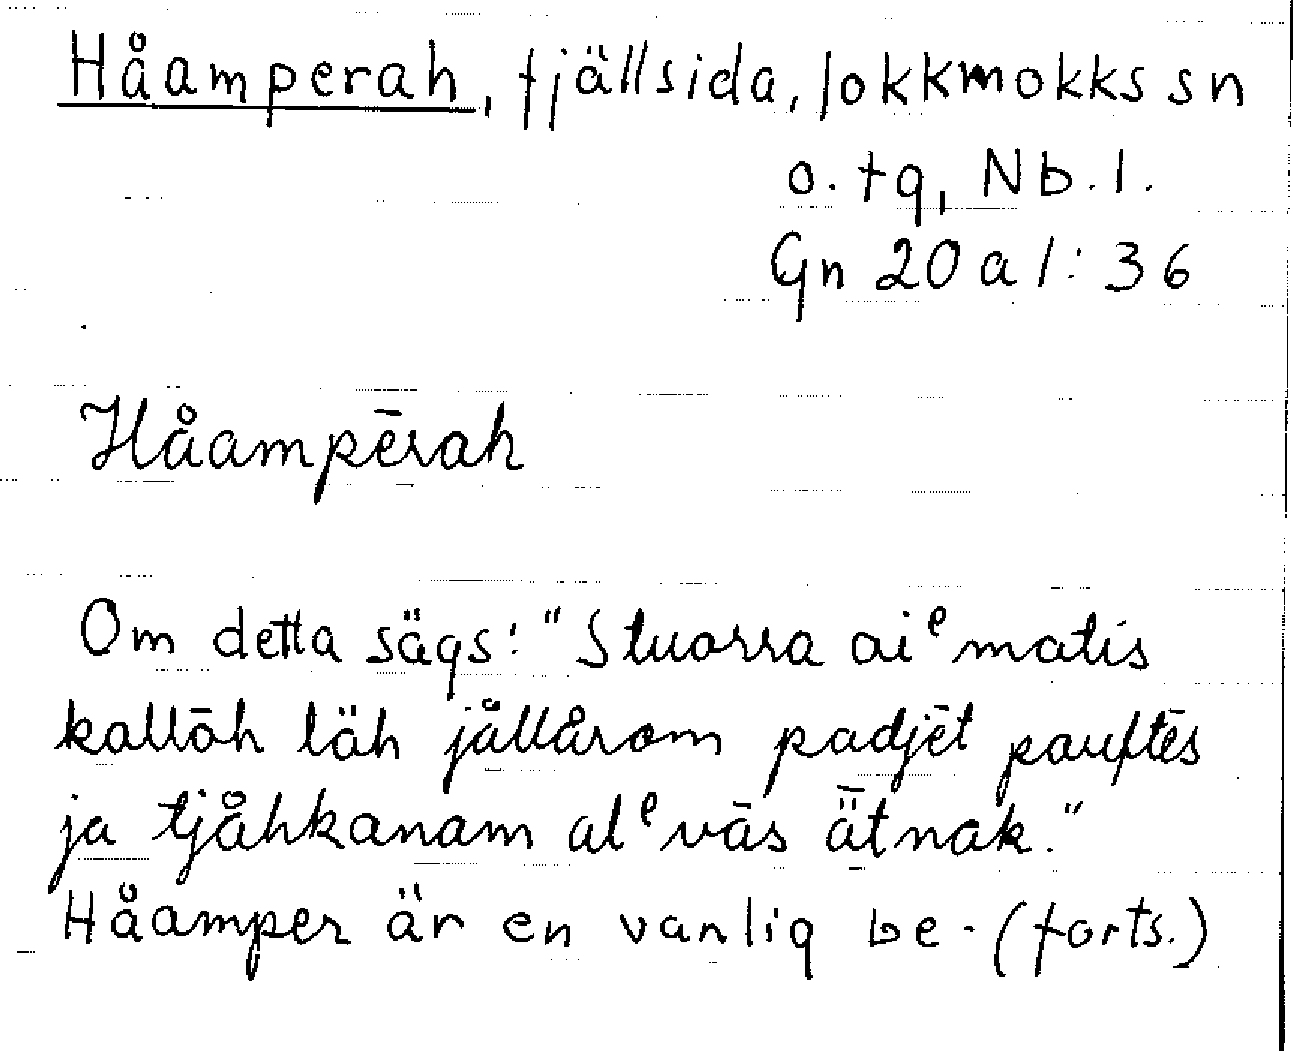 Håamperah, fjällsida, Jokkmokks sn
o. tg, Nb. l.
Gn 20 a 1: 36
Håampērah
Om detta sägs: "Stuorra aiᵉmatis
kallōh läh jållårom padjēt pauftēs
ja tjåhkanam alᵉvās ǟtnak."
Håamper är en vanlig be- (forts.)